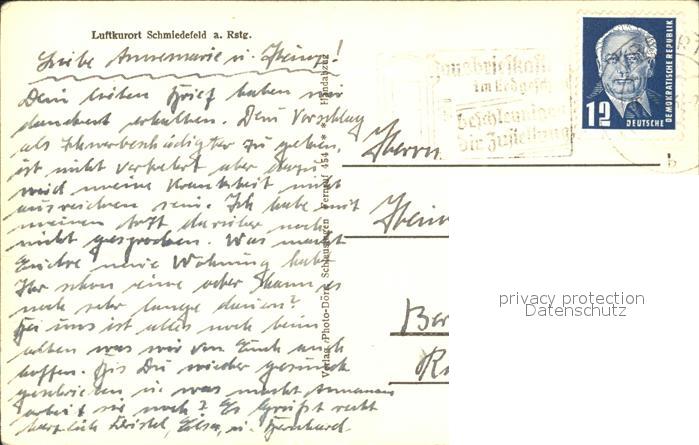 Luftkurort Schmiedefeld a. Rstg.
Liebe Annemarie u. Heinz!
Dein lieben Brief haben wir
dankend erhalten. Dein Vorschlag
als Schwerbeschädigter zu gehen,
ist nicht verkehrt aber dazu
wird meine Krankheit nicht
ausreichen sein. Ich habe mit
meinen Arzt darüber noch
nicht gesprochen. Was macht
Eure neue Wohnung habt
Ihr schon eine oder kann es
noch sehr lange dauern?
Bei uns ist alles noch beim
alten was wir von Euch auch
hoffen. Bis Du wieder gesund
geschrieben u. was macht Annemarie
arbeitet sie noch? Es grüßt recht
herzlich Christel, Elsa, u. Bernhard.
Verlag Photo-Dörr, Schleusingen Fernruf 454 * Handabzug
Hausbriefkasten
im Erdgeschoß
beschleunigen
die Zustellung
12
DEUTSCHE
DEMOKRATISCHE REPUBLIK
Herrn
Hein
Ber
b
privacy protection
Datenschutz